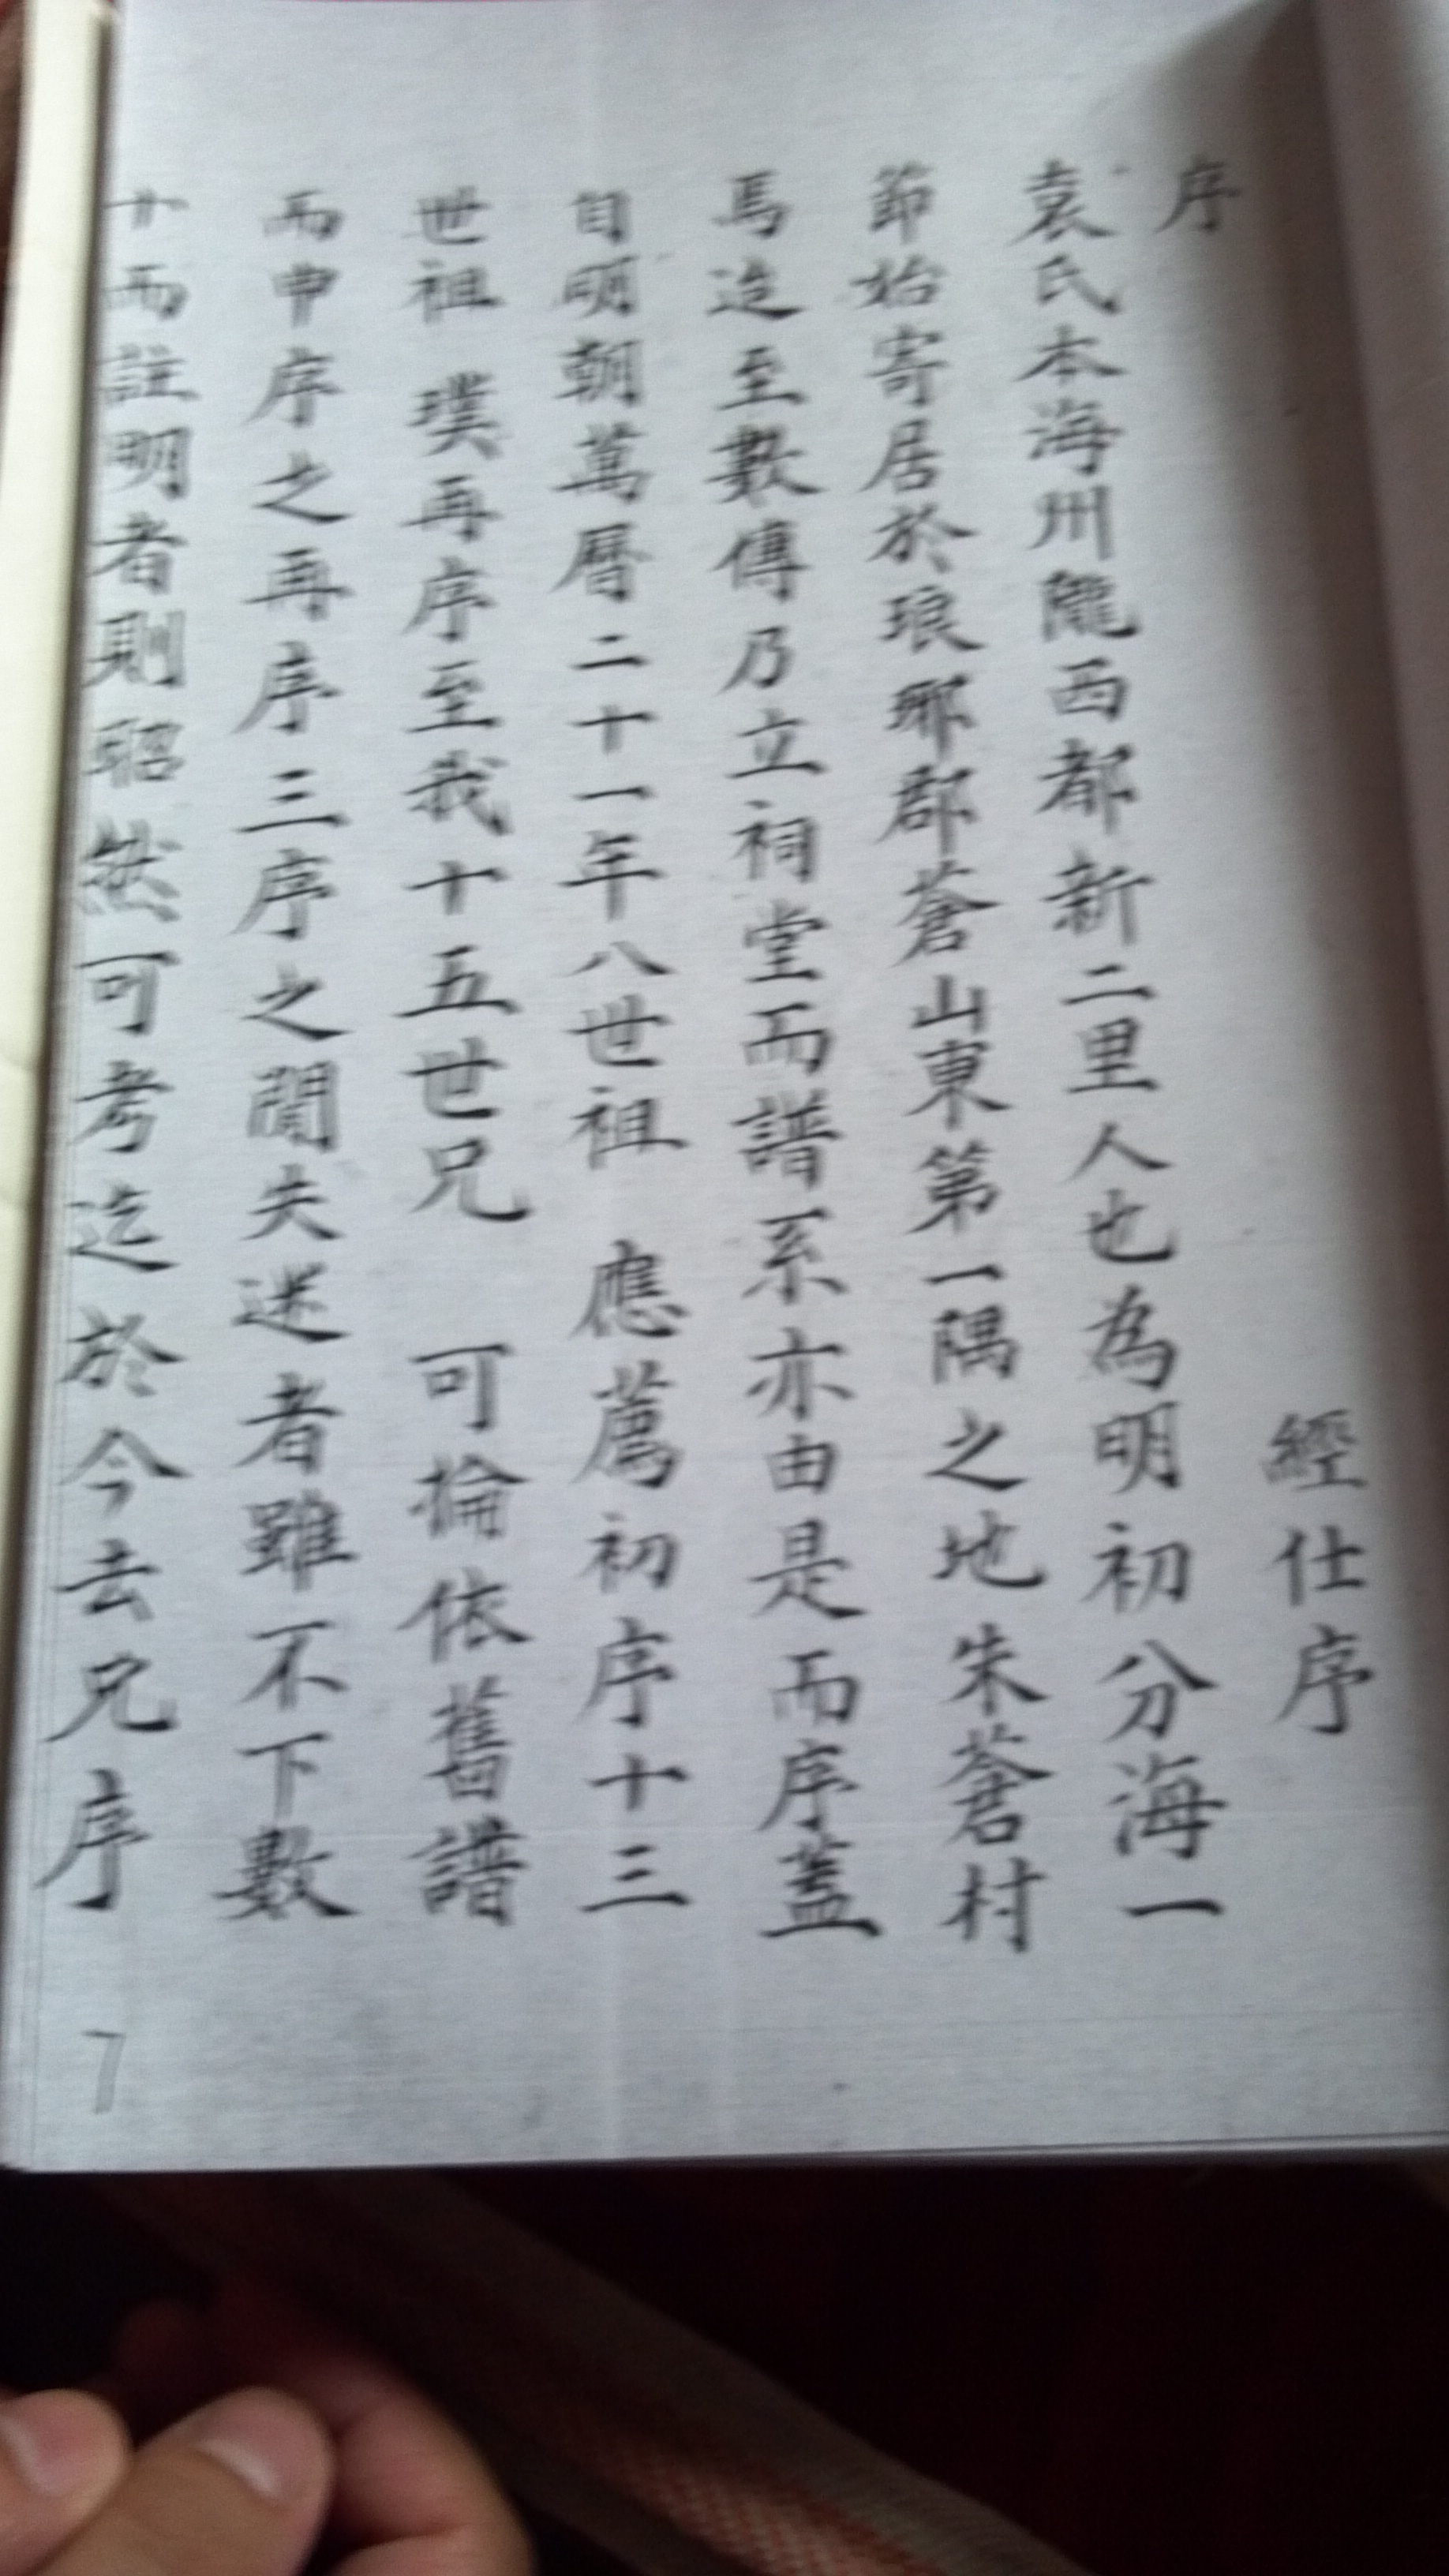 經仕序
序
袁氏本海州隴西都新二里人也為明初分海一
節始寄居於琅琊郡蒼山東第一隅之地朱蒼村
焉迨至數傳乃立祠堂而譜系亦由是而序蓋
自明朝萬曆二十一年八世祖 應薦初序十三
世祖 璞再序至我十五世兄 可掄依舊譜
而申序之再序三序之間失迷者雖不下數
十而註明者則昭然可考迄於今去兄序
7